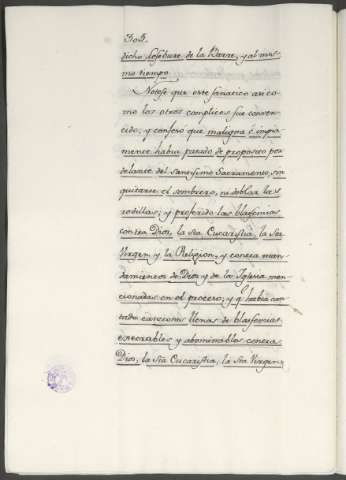 dicho Lefebure de la Barre, y al mis-
mo tiempo.
Notese que este fanatico asi co-
mo los otros complices fue conven-
cido, y confesò que maligna è impia-
mente habia pasado de proposito por
delante del Santisimo Sacramento, sin
quitarse el sombrero, ni doblar las
rodillas; y proferido las blasfemias
contra Dios, la Sta Eucaristia, la Sta
Virgen, y la Religion, y contra man-
damientos de Dios y de la Iglesia men-
cionadas en el proceso; y q.e habia can-
tado canciones llenas de blasfemias
execrables y abominables contra
Dios, la Sta Eucaristia, la Sta Virgen,